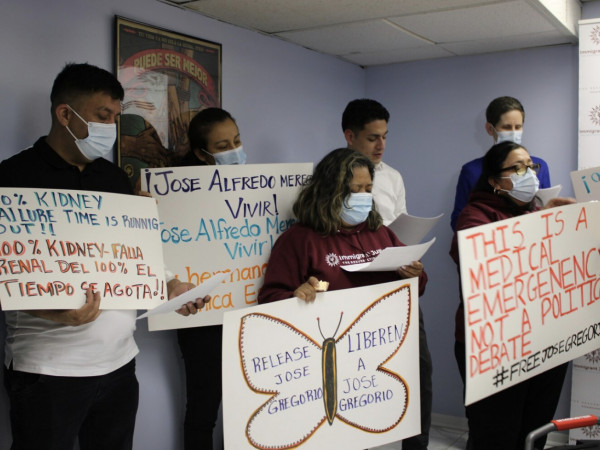 PUEDE SER MEJOR
0% KIDNEY
FAILURE TIME IS RUNNING
OUT!!
100% KIDNEY-FALLA
RENAL DEL 100% EL
TIEMPO SE AGOTA!!
¡JOSE ALFREDO MERE
VIVIR!
Jose Alfredo Mere
Vivir!
hermana
ica E
RELEASE
JOSE
GREGORIO
LIBEREN
A
JOSE
GREGORIO
THIS IS A
MEDICAL
EMERGENCY
NOT A POLITIC
DEBATE
#FREEJOSEGREGORIO